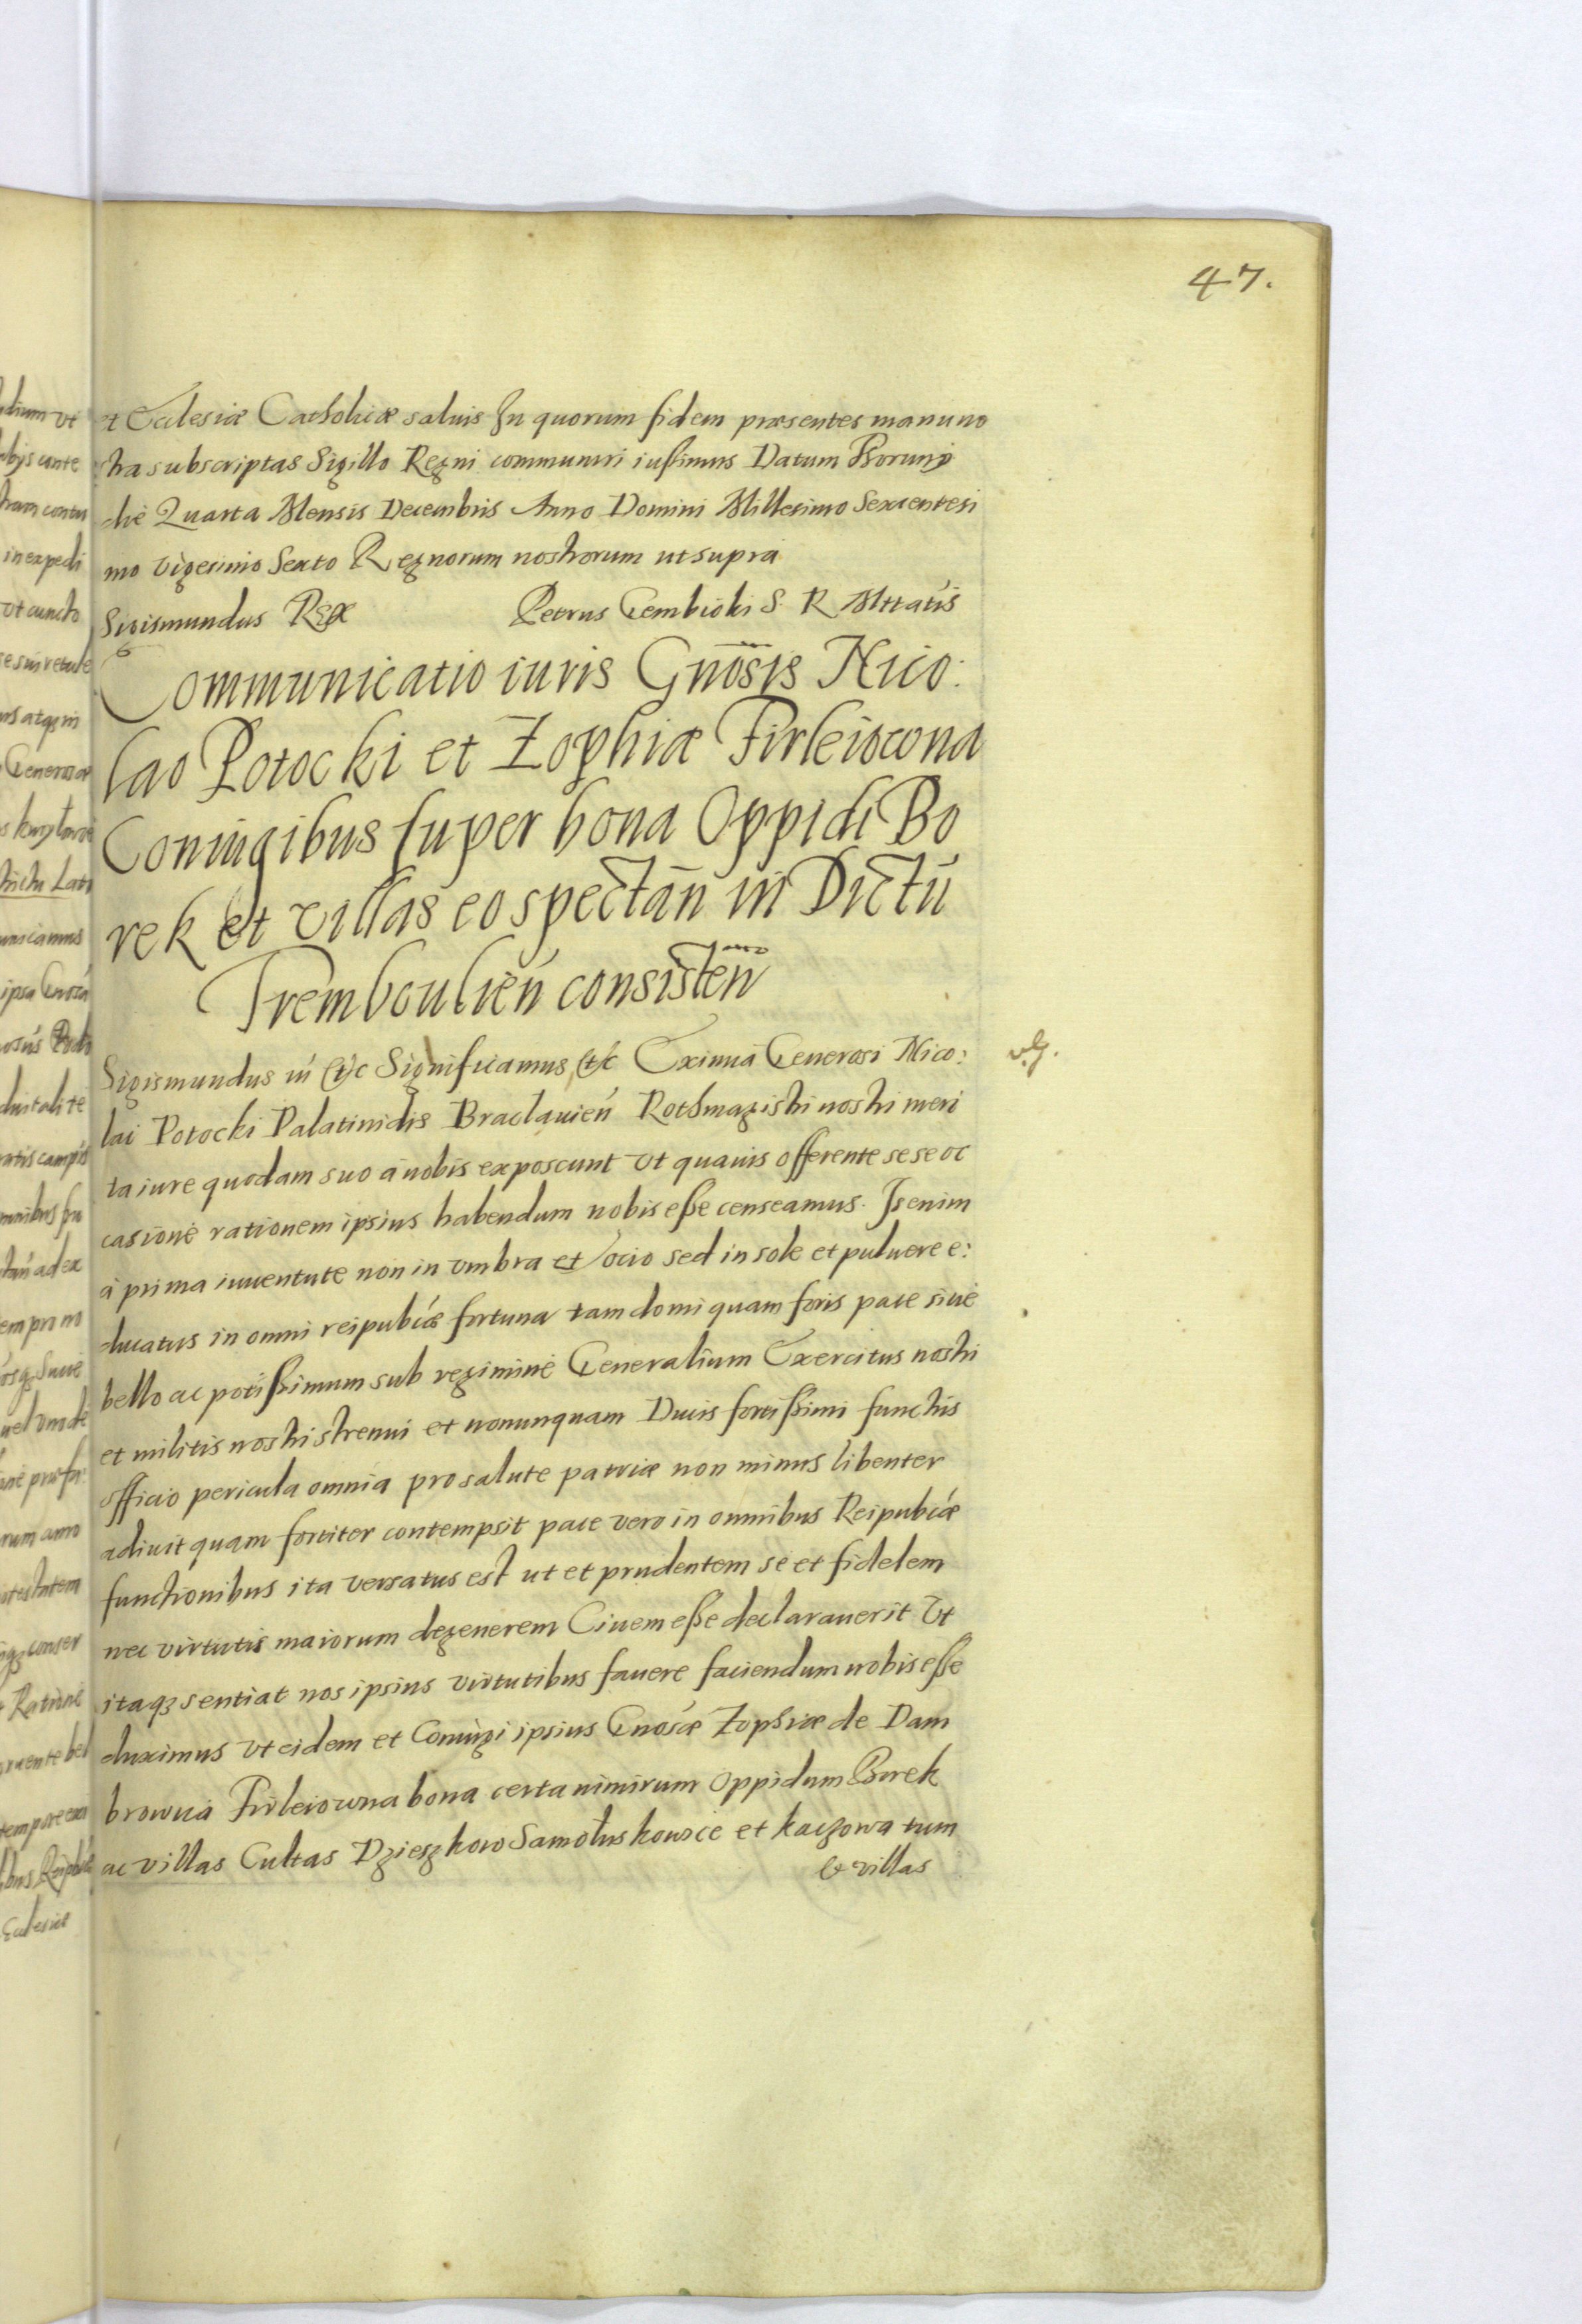 47.
et Ecclesiæ Catholicæ saluis In quorum fidem præsentes manu no
stra subscriptas Sigillo Regni communiri iussimus Datum Thorunÿ
die Quarta Mensis Decembris Anno Domini Millesimo Sexcentesi
mo vigesimo Sexto Regnorum nostrorum ut supra
Sigismundus Rex Petrus Gembicki S. R Mttatis
Communicatio iuris Gnōsis Nico:
lao Potocki et Zophiæ Firleiowna
Coniugibus super bona Oppidi Bo
rek et villas eo spectān in Dictū
Trembouliēn consistēn
Sigismundus iii etc Significamus, etc Eximia Generosi Nico:
lai Potocki Palatinidis Braclauień Rothmagistri nostri meri
ta iure quodam suo a nobis exposcunt vt quauis offerente sese oc
casione rationem ipsius habendum nobis esse censeamus. Is enim
à prima iuuentute non in vmbra et ocio sed in sole et puluere e:
ducatus in omni reipubcæ fortuna tam domi quam foris pace siue
bello ac potissimum sub regimine Generalium Exercitus nostri
et militis nostri strenui et nonunquam Ducis fortissimi functus
officio pericula omnia pro salute patriæ non minus libenter
adiuit quam fortiter contempsit pace vero in omnibus Reipubcæ
functionibus ita versatus est ut et prudentem se et fidelem
nec virtutis maiorum degenerem Ciuem esse declarauerit Vt
itaqʒ sentiat nos ipsius virtutibus fauere faciendum nobis esse
duximus vt eidem et Coniugi ipsius Gnosæ Zophiæ de Dam
browica Firleiowna bona certa nimirum Oppidum Borek
ac villas Cultas Dzieszkow Samołuskowce et kaczowa tum
& villas